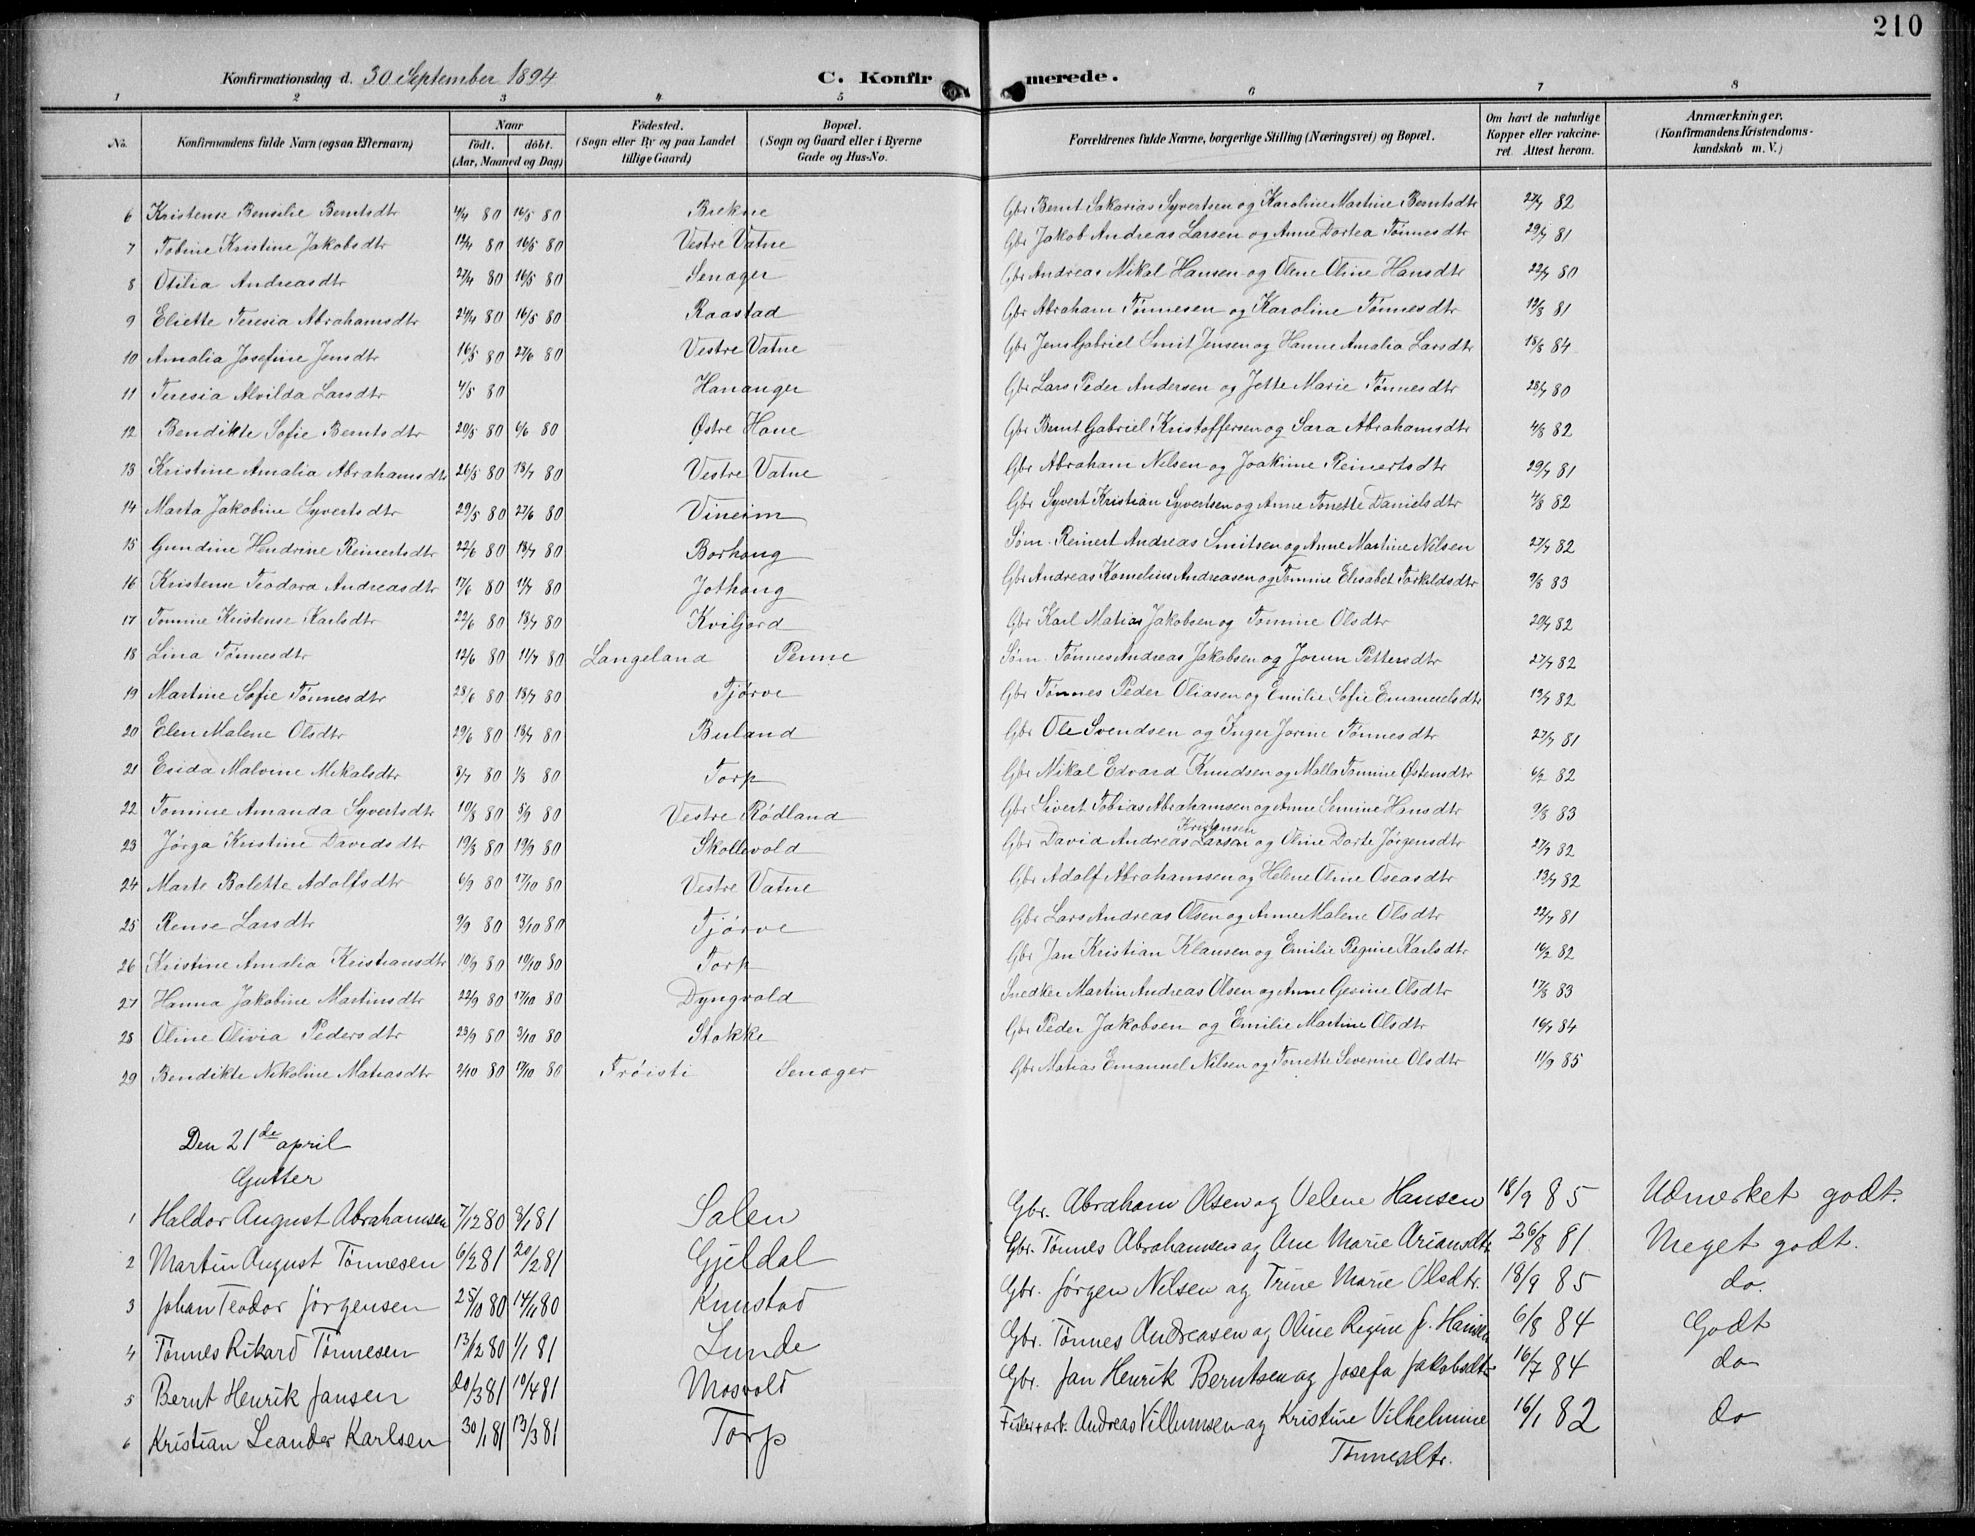 210
Konfirmationsdag d. 30 September 1894 C. Konfirmerede.
1 2 3 4 5 6 7 8
No. Konfirmandens fulde Navn (ogsaa Efternavn) Naar födt. döbt. (Aar, Maaned og Dag) Födested. (Sogn eller By og paa Landet tillige Gaard) Bopæl. (Sogn og Gaard eller i Byerne Gade og Hus-No. Forældrenes fulde Navne, borgerlige Stilling (Næringsvei) og Bopæl. Om havt de naturlige Kopper eller vakcineret. Attest herom. Anmærkninger. (Konfirmandens Kristendomskundskab m. V.)
6 Kristense Bensilie Berntsdtr 4/4 80 16/5 80 Brekne Gbr Bernt Sakarias Syvertsen og Karoline Martine Berntsdtr 27/7 82
7 Tobine Kristine Jakobsdtr 12/4 80 16/5 80 Vestre Vatne Gbr Jakob Andreas Larsen og Anne Dortea Tönnesdtr 29/7 81
8 Otilia Andreasdtr 27/4 80 16/5 80 Senager Gbr Andreas Mikal Hansen og Olene Oline Hansdtr 22/7 80
9 Eliette Teresia Abrahamsdtr 24/4 80 16/5 80 Raastad Gbr Abraham Tönnesen og Karoline Tönnesdtr 19/8 81
10 Amalia Josefine Jensdtr 16/5 80 27/6 80 Vestre Vatne Gbr Jens Gabriel Smit Jensen og Hanne Amalia Larsdtr 18/8 84
11 Teresia Alvilda Larsdtr 4/5 80 Hananger Gbr Lars Peder Andersen og Jette Marie Tønnesdtr 28/7 80
12 Bendikte Sofie Berntsdtr 20/5 80 6/6 80 Østre Haue Gbr Bernt Gabriel Kristoffersen og Sara Abrahamsdtr 4/8 82
13 Kristine Amalia Abrahamsdtr 26/5 80 18/7 80 Vestre Vatne Gbr Abraham Nilsen og Joakime Reinertsdtr 29/7 81
14 Marta Jakobine Syvertsdtr 29/5 80 27/6 80 Vineim Gbr Syvert Kristian Syvertsen og Anne Tonette Danielsdtr 4/8 82
15 Gundine Hendrine Reinertsdtr 22/6 80 18/7 80 Borhaug Søm. Reinert Andreas Smitsen og Anne Martine Nilsen 27/7 82
16 Kristense Teodora Andreasdtr 17/6 80 11/7 80 Jothaug Gbr Andreas Kornelius Andreasen og Tomine Elisabet Torkildsdtr 9/8 83
17 Tomine Kristense Karlsdtr 22/6 80 18/7 80 Kviljord Gbr Karl Matias Jakobsen og Tomine Olsdtr 20/7 82
18 Lina Tönnesdtr 12/6 80 11/7 80 Langeland Penne Søm. Tønnes Andreas Jakobsen og Jorun Pettersdtr 27/7 82
19 Martine Sofie Tönnesdtr 28/6 80 18/7 80 Tjørve Gbr Tønnes Peder Oliasen og Emilie Sofie Emanuelsdtr 19/7 82
20 Elen Malene Olsdtr 29/6 80 18/7 80 Buland Gbr Ole Svendsen og Inger Jorine Tønnesdtr 27/7 81
21 Esida Malvine Mikalsdtr 8/7 80 1/8 80 Torp Gbr Mikal Edvard Knudsen og Malla Tomine Østensdtr 6/2 82
22 Tomine Amanda Syvertsdtr 10/8 80 5/9 80 Vestre Rödland Gbr Sivert Tobias Abrahamsen og Anne Semine Hansdtr 9/8 83
23 Jørga Kristine Davidsdtr 19/8 80 19/9 80 Skollevold Gbr David Andreas Larsen Kristensen og Oline Dorte Jörgensdtr 27/7 82
24 Marte Bolette Adolfsdtr 6/9 80 17/10 80 Vestre Vatne Gbr Adolf Abrahamsen og Helene Oline Oseasdtr 13/7 82
25 Rense Larsdtr 9/9 80 3/10 80 Tjørve Gbr Lars Andreas Olsen og Anne Malene Olsdtr 22/7 81
26 Kristine Amalia Kristiansdtr 10/9 80 10/10 80 Torp Gbr Jan Kristian Klausen og Emilie Regine Karlsdtr 16/2 82
27 Hanna Jakobine Martinsdtr 22/9 80 17/10 80 Dyngvold Snedker Martin Andreas Olsen og Anne Gesine Olsdtr 17/8 83
28 Oline Olivia Pedersdtr 23/9 80 3/10 80 Stokke Gbr Peder Jakobsen og Emilie Martine Olsdtr 16/7 84
29 Bendikte Nikoline Matiasdtr 2/10 80 17/10 80 Tröisti Senager Gbr Matias Emanuel Nilsen og Tonette Severine Olsdtr 11/9 85
Den 21de april
Gutter
1 Haldor August Abrahamsen 7/12 80 3/1 81 Salen Gbr. Abraham Olsen og Velene Hansen 18/9 85 Udmerket godt.
2 Martin August Tönnesen 6/2 81 20/2 81 Gjeldal Gbr. Tønnes Abrahamsen og Ane Marie Ariansdtr 26/8 81 Meget godt.
3 Johan Teodor Jørgensen 25/10 80 14/11 80 Knustad Gbr. Jørgen Nilsen og Trine Marie Olsdtr. 18/9 85 do.
4 Tönnes Rikard Tönnesen 13/12 80 1/1 81 Lunde Gbr. Tønnes Andreasen og Oline Regine J. Hansen 6/8 84 Godt
5 Bernt Henrik Jansen 20/3 81 10/4 81 Mosvold Gbr. Jan Henrik Berntsen og Josefa Jakobsdtr 16/7 84 do
6 Kristian Leander Karlsen 30/1 81 13/3 81 Torp Andreas Villumsen og Kristine Vilhelmine 16/1 82 do
Tønnesdtr.